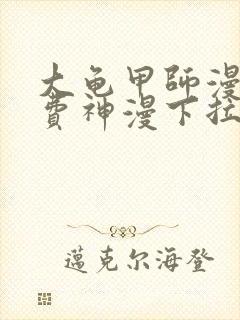 大龟甲師漫
費神漫下拉
邁克尔海登